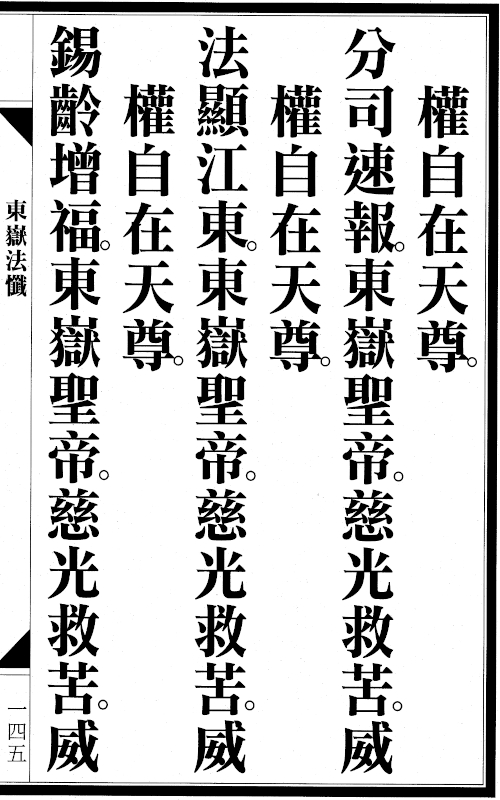 權自在天尊。
分司速報。東嶽聖帝。慈光救苦。威
權自在天尊。
法顯江東。東嶽聖帝。慈光救苦。威
權自在天尊。
錫齡增福。東嶽聖帝。慈光救苦。威
東嶽法懺
一四五